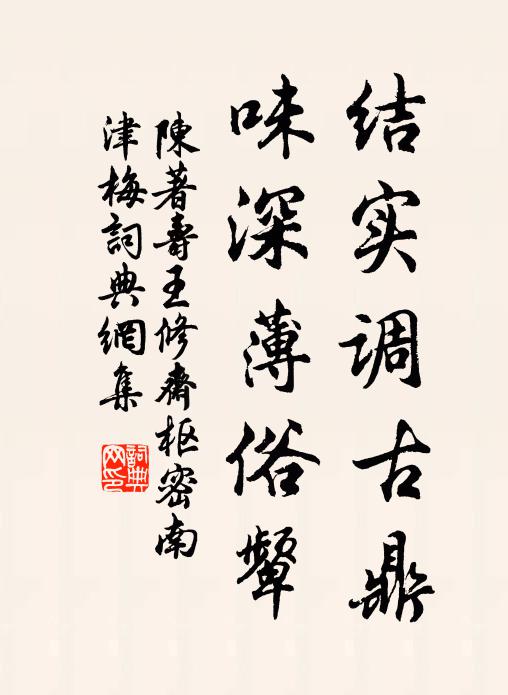 结实调古鼎
味深薄俗颦
陳著壽王修齋枢密南
津梅詞典網集
詞典网印